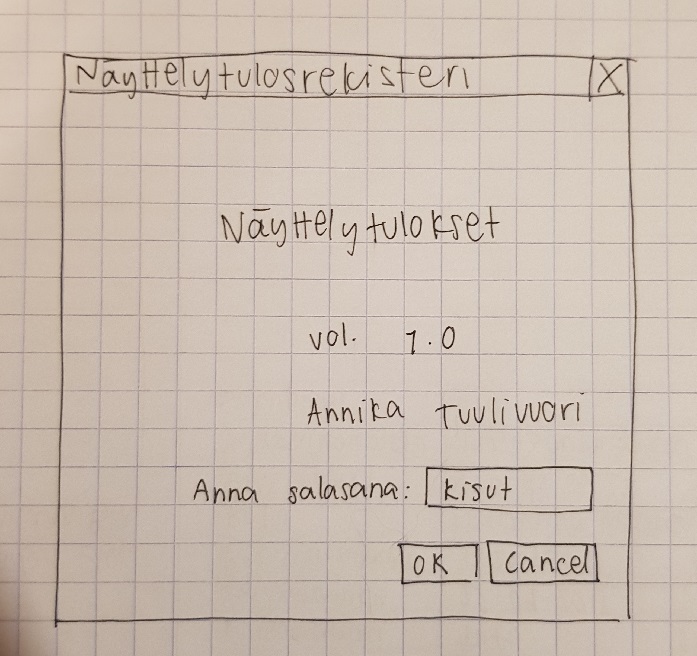 Näyttelytulosrekisteri X
Näyttelytulokset
vol. 1.0
Annika Tuulivuori
Anna salasana: kisut
OK Cancel